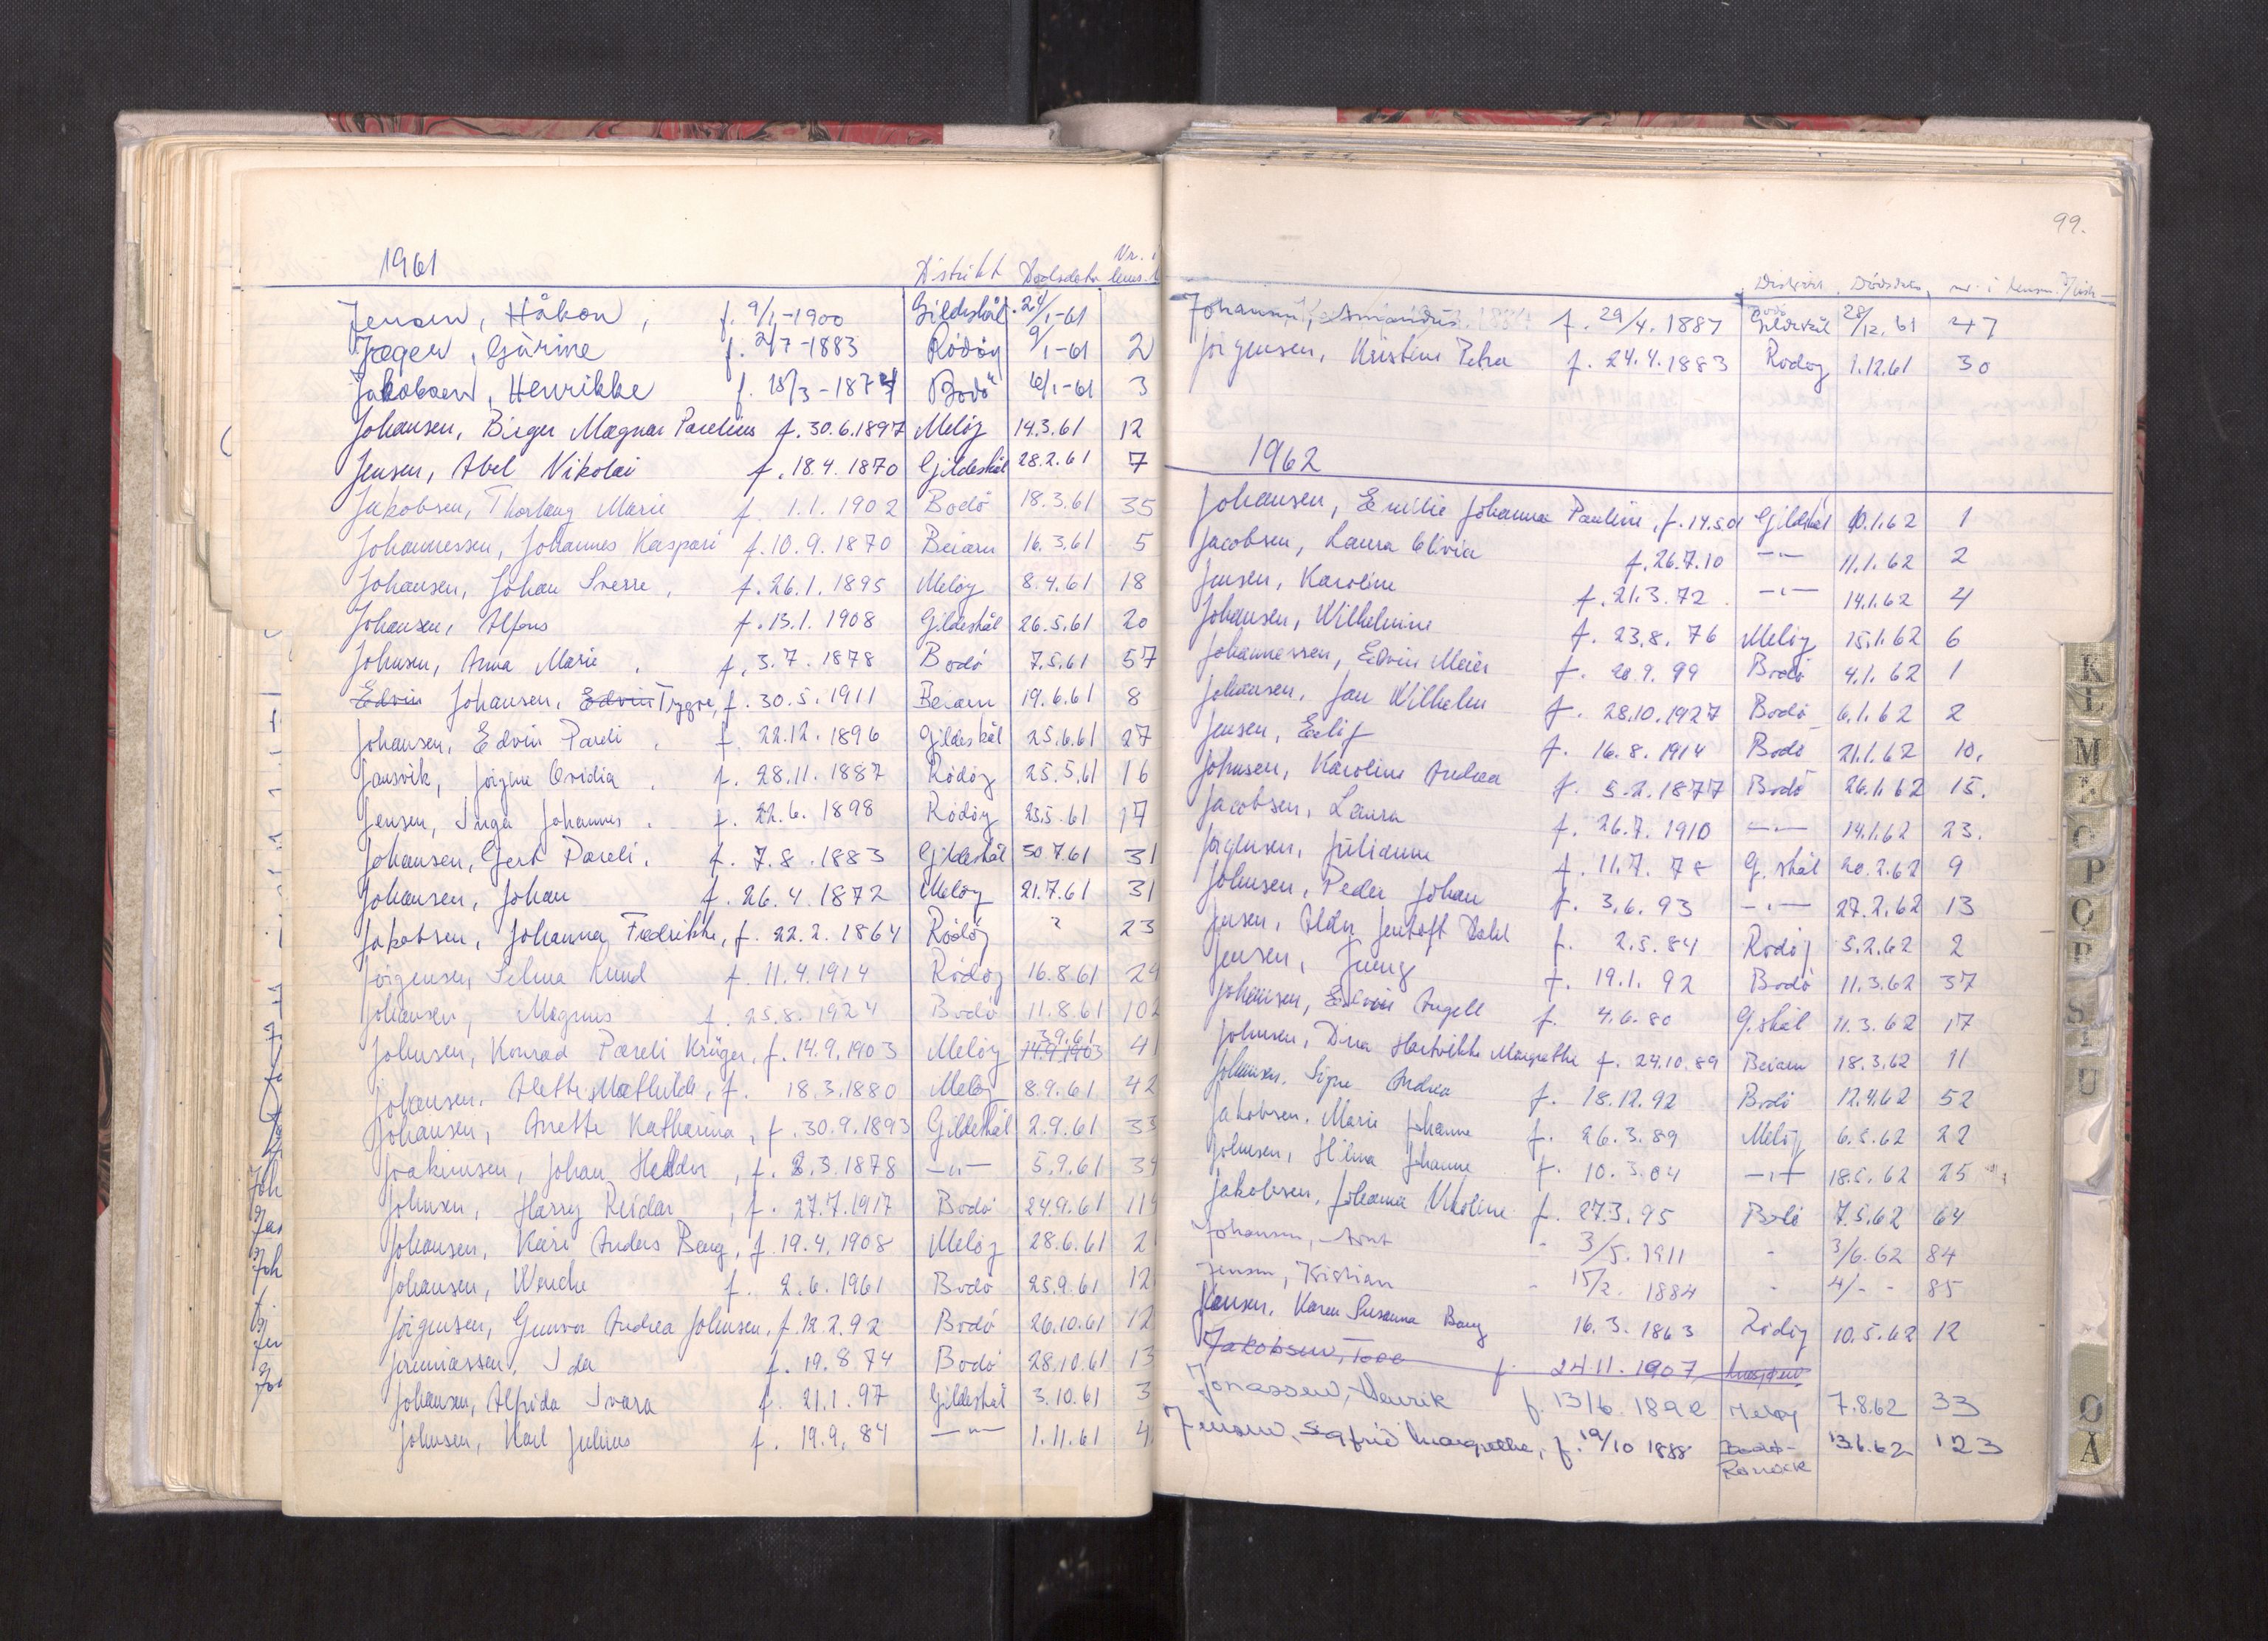 1961
Distrikt Dødsdato Nr. i
Jensen, Håkon, f. 9/1-1900 Gildeskål 24/1-61
Jæger, Gurine f. 2/7-1883 Rödöy 9/1-61 2
Jakobsen, Henrikke f. 18/3-1874 Bodö 6/1-61 3
Johansen, Birger Magnar Parelius f. 30.6.1897 Melöy 14.3.61 12
Jensen, Abel Nikolai f. 18.4.1870 Gildeskål 28.2.61 7
Jakobsen, Thorlaug Marie f. 1.1.1902 Bodö 18.3.61 35
Johannessen, Johannes Kaspari f. 10.9.1870 Beiarn 16.3.61 5
Johansen, Johan Sverre, f. 26.1.1895 Melöy 8.4.61 18
Johansen, Alfons f. 13.1.1908 Gildeskål 26.5.61 20
Johnsen, Anna Marie. f. 3.7.1878 Bodö 7.5.61 57
Edvin Johansen, Edvin Trygve, f. 30.5.1911 Beiarn 19.6.61 8
Johansen, Edvin Pareli. f. 22.12.1896 Gildeskål 25.6.61 27
Jansvik, Jörgine Ovidia. f. 28.11.1887 Rödöy 25.5.61 16
Jensen, Inga Johannes. f. 22.6.1898 Rödöy 23.5.61 17
Johansen, Gert Pareli. f. 7.8.1883 Gildeskål 30.7.61 31
Johansen, Johan f. 26.4.1872 Melöy 21.7.61 31
Jakobsen, Johanna Fredrikke, f. 22.2.1864 Rödöy ? 23
Jörgensen, Selma Lund f. 11.4.1914 Rödöy 16.8.61 24
Johansen, Magnus f. 25.8.1924 Bodö 11.8.61 102
Johnsen, Konrad Pareli Krüger, f. 14.9.1903 Melöy 14.9.1903 3.9.61 41
Johansen, Alette Mathilde, f. 18.3.1880 Melöy 8.9.61 42
Johansen, Anette Katharina, f. 30.9.1893 Gildeskål 2.9.61 33
Joakimsen, Johan Heldor, f. 2.3.1878 —"— 5.9.61 34
Johnsen, Harry Reidar, f. 27.7.1917 Bodö 24.9.61 119
Johansen, Kåre Anders Berg, f. 19.4.1908 Melöy 28.6.61 2
Johansen, Wenche f. 2.6.1961 Bodö 25.9.61 12
Jörgensen, Gunvor Andrea Johnsen, f. 12.2.92 Bodö 26.10.61 12
Jeremiassen, Ida f. 19.8.74 Bodö 28.10.61 13
Johansen, Alfrida Ivara f. 21.1.97 Gildeskål 3.10.61 3
Johnsen, Karl Julius f. 19.9.84 —"— 1.11.61 4
99.
Distrikt Dödsdato nr. i
Johansen, Amandus f. 29/4.1887 Gildeskål 28/12.61 47
Jörgensen, Kristine Petra f. 24.4.1883 Rödöy 1.12.61 30
1962
Johansen, Emilie Johanna Pauline, f. 14.5.01 Gildeskål 10.1.62 1
Jacobsen, Laura Olivia f. 26.7.10 —"— 11.1.62 2
Jensen, Karoline f. 21.3.72 —"— 14.1.62 4
Johansen, Wilhelmine f. 23.8.76 Melöy 15.1.62 6
Johannessen, Edvin Meier f. 20.9.99 Bodö 4.1.62 1
Johansen, Jan Wilhelm f. 28.10.1927 Bodö 6.1.62 2
Jensen, Eilif f. 16.8.1914 Bodö 21.1.62 10.
Johnsen, Karoline Andrea f. 5.2.1877 Bodö 26.1.62 15.
Jacobsen, Laura f. 26.7.1910 —"— 14.1.62 23.
Jörgensen, Julianne f. 11.7.78 G.skål 20.2.62 9
Johnsen, Peder Johan f. 3.6.93 —"— 27.2.62 13
Jensen, Aldy Jentoft Dahl f. 2.5.84 Rödöy 5.2.62 2
Jensen, Jenny f. 19.1.92 Bodö 11.3.62 37
Johansen, Edvin Angell f. 4.6.80 G.skål 11.3.62 17
Johnsen, Dina Hartvikke Margrethe f. 24.10.89 Beiarn 18.3.62 11
Johansen, Signe Andrea f. 18.12.92 Bodö 12.4.62 52
Jakobsen, Marie Johanne f. 26.3.89 Melöy 6.5.62 22
Johnsen, Hilma Johanne f. 10.3.04 —"— 18.5.62 25
Jakobsen, Johanna Nikoline f. 27.3.95 Bodö 7.5.62 64
Johansen, Arnt - 3/5.1911 - 3/6.62 84
Jensen, Kristian - 15/2.1884 - 4/- - 85
Jensen, Karen Susanna Bang 16.3.1863 Rödöy 10.5.62 12
Jakobsen, Tove f. 24.11.1907
Jonassen, Henrik f. 13/6.1892 Melöy 7.8.62 33
Jensen, Sigfrid Margrethe, f. 19/10 1888 Bodö- 13.6.62 123
K
L
M
O
P
Q
R
S
T
U
Ø
Å